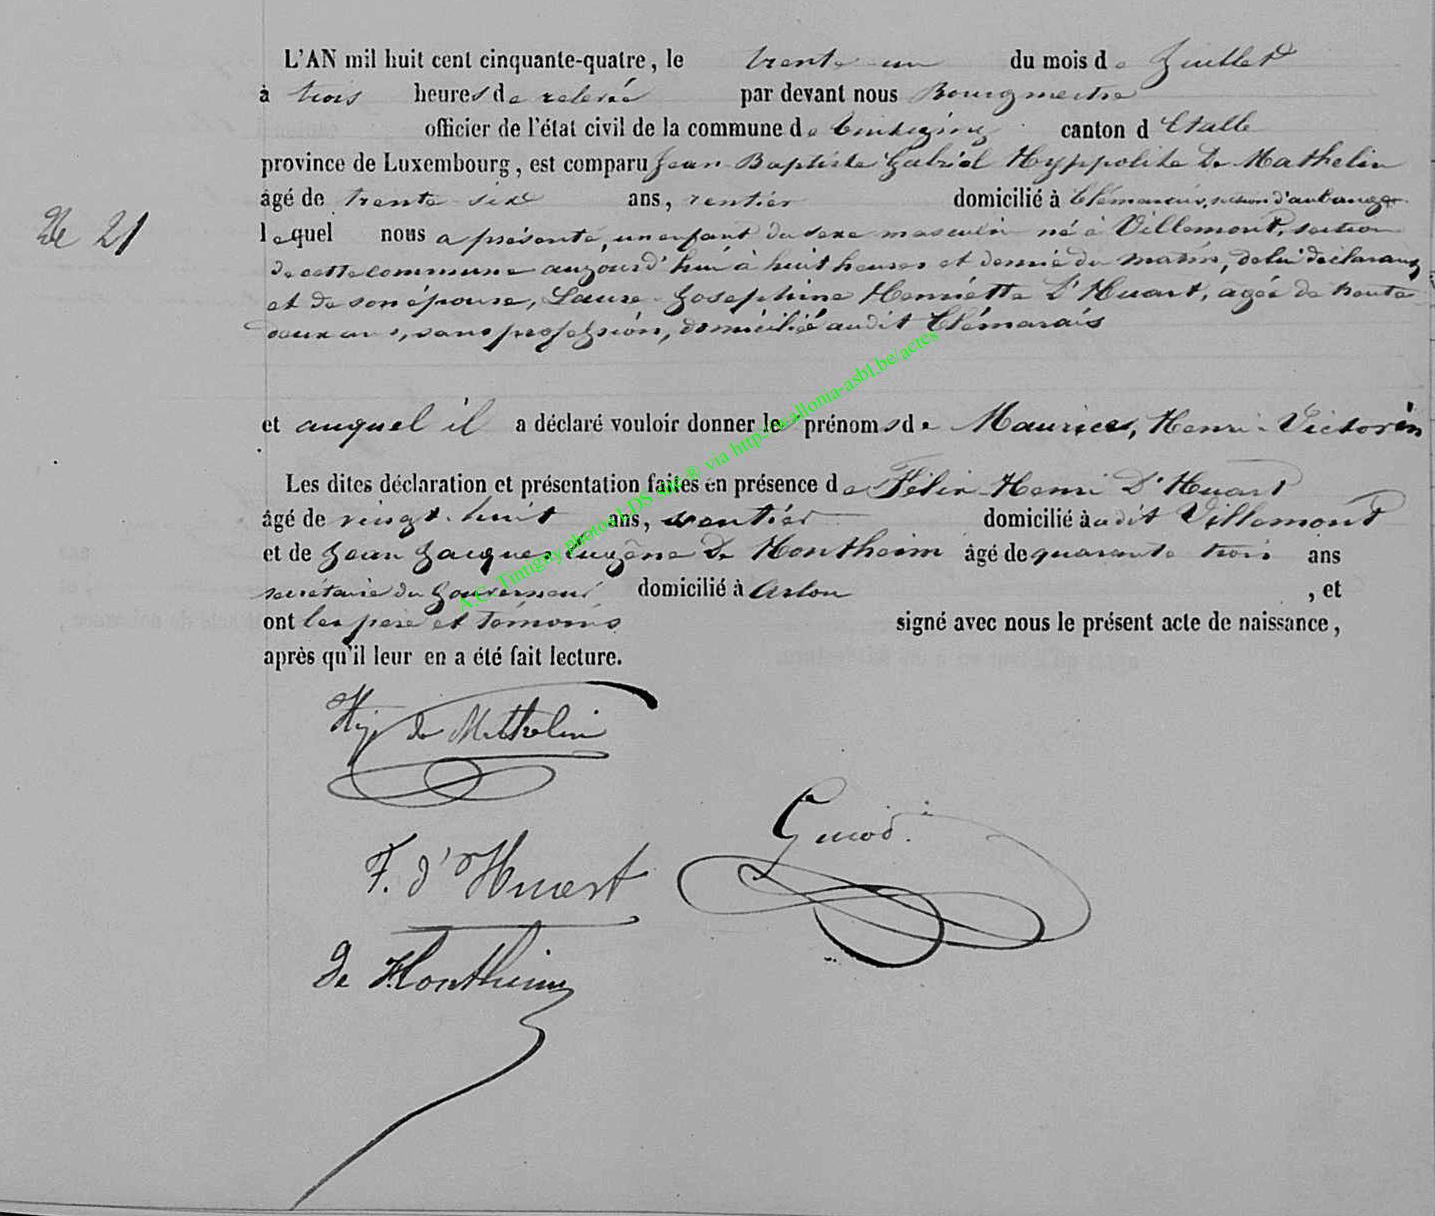 L'AN mil huit cent cinquante-quatre, le trente un du mois de Juillet
à trois heures de relevée par devant nous Bourgmestre
officier de l'état civil de la commune de Tintigny canton d Etalle
province de Luxembourg, est comparu Jean Baptiste Gabriel Hyppolite De Mathelin
âgé de trente six ans, rentier domicilié à Clémarais, section d'aubange
No 21
lequel nous a présenté, un enfant du sexe masculin né à Villemont, section
de cette commune aujourd'hui à huit heures et demie du matin, de lui déclarant
et de son épouse, Laure Josephine Henriette D'Huart, agée de trente
deux ans, sans profession, domicilié audit Clémarais
et auquel il a déclaré vouloir donner le prénoms de Maurice, Henri Victorin
Les dites déclaration et présentation faites en présence de Félix Henri D'Huart
âgé de vingt-huit ans, rentier domicilié à audit Villemont
et de Jean Jacques Eugène De Hontheim âgé de quarante trois ans
secrétaire du Gouverneur domicilié à Arlon , et
ont les père et témoins signé avec nous le présent acte de naissance,
après qu'il leur en a été fait lecture.
Hyp de Mathelin
F. d'Huart
De Hontheim
A.C. Tintigny photos LDS snc ® via http://wallonia-asbl.be/actes